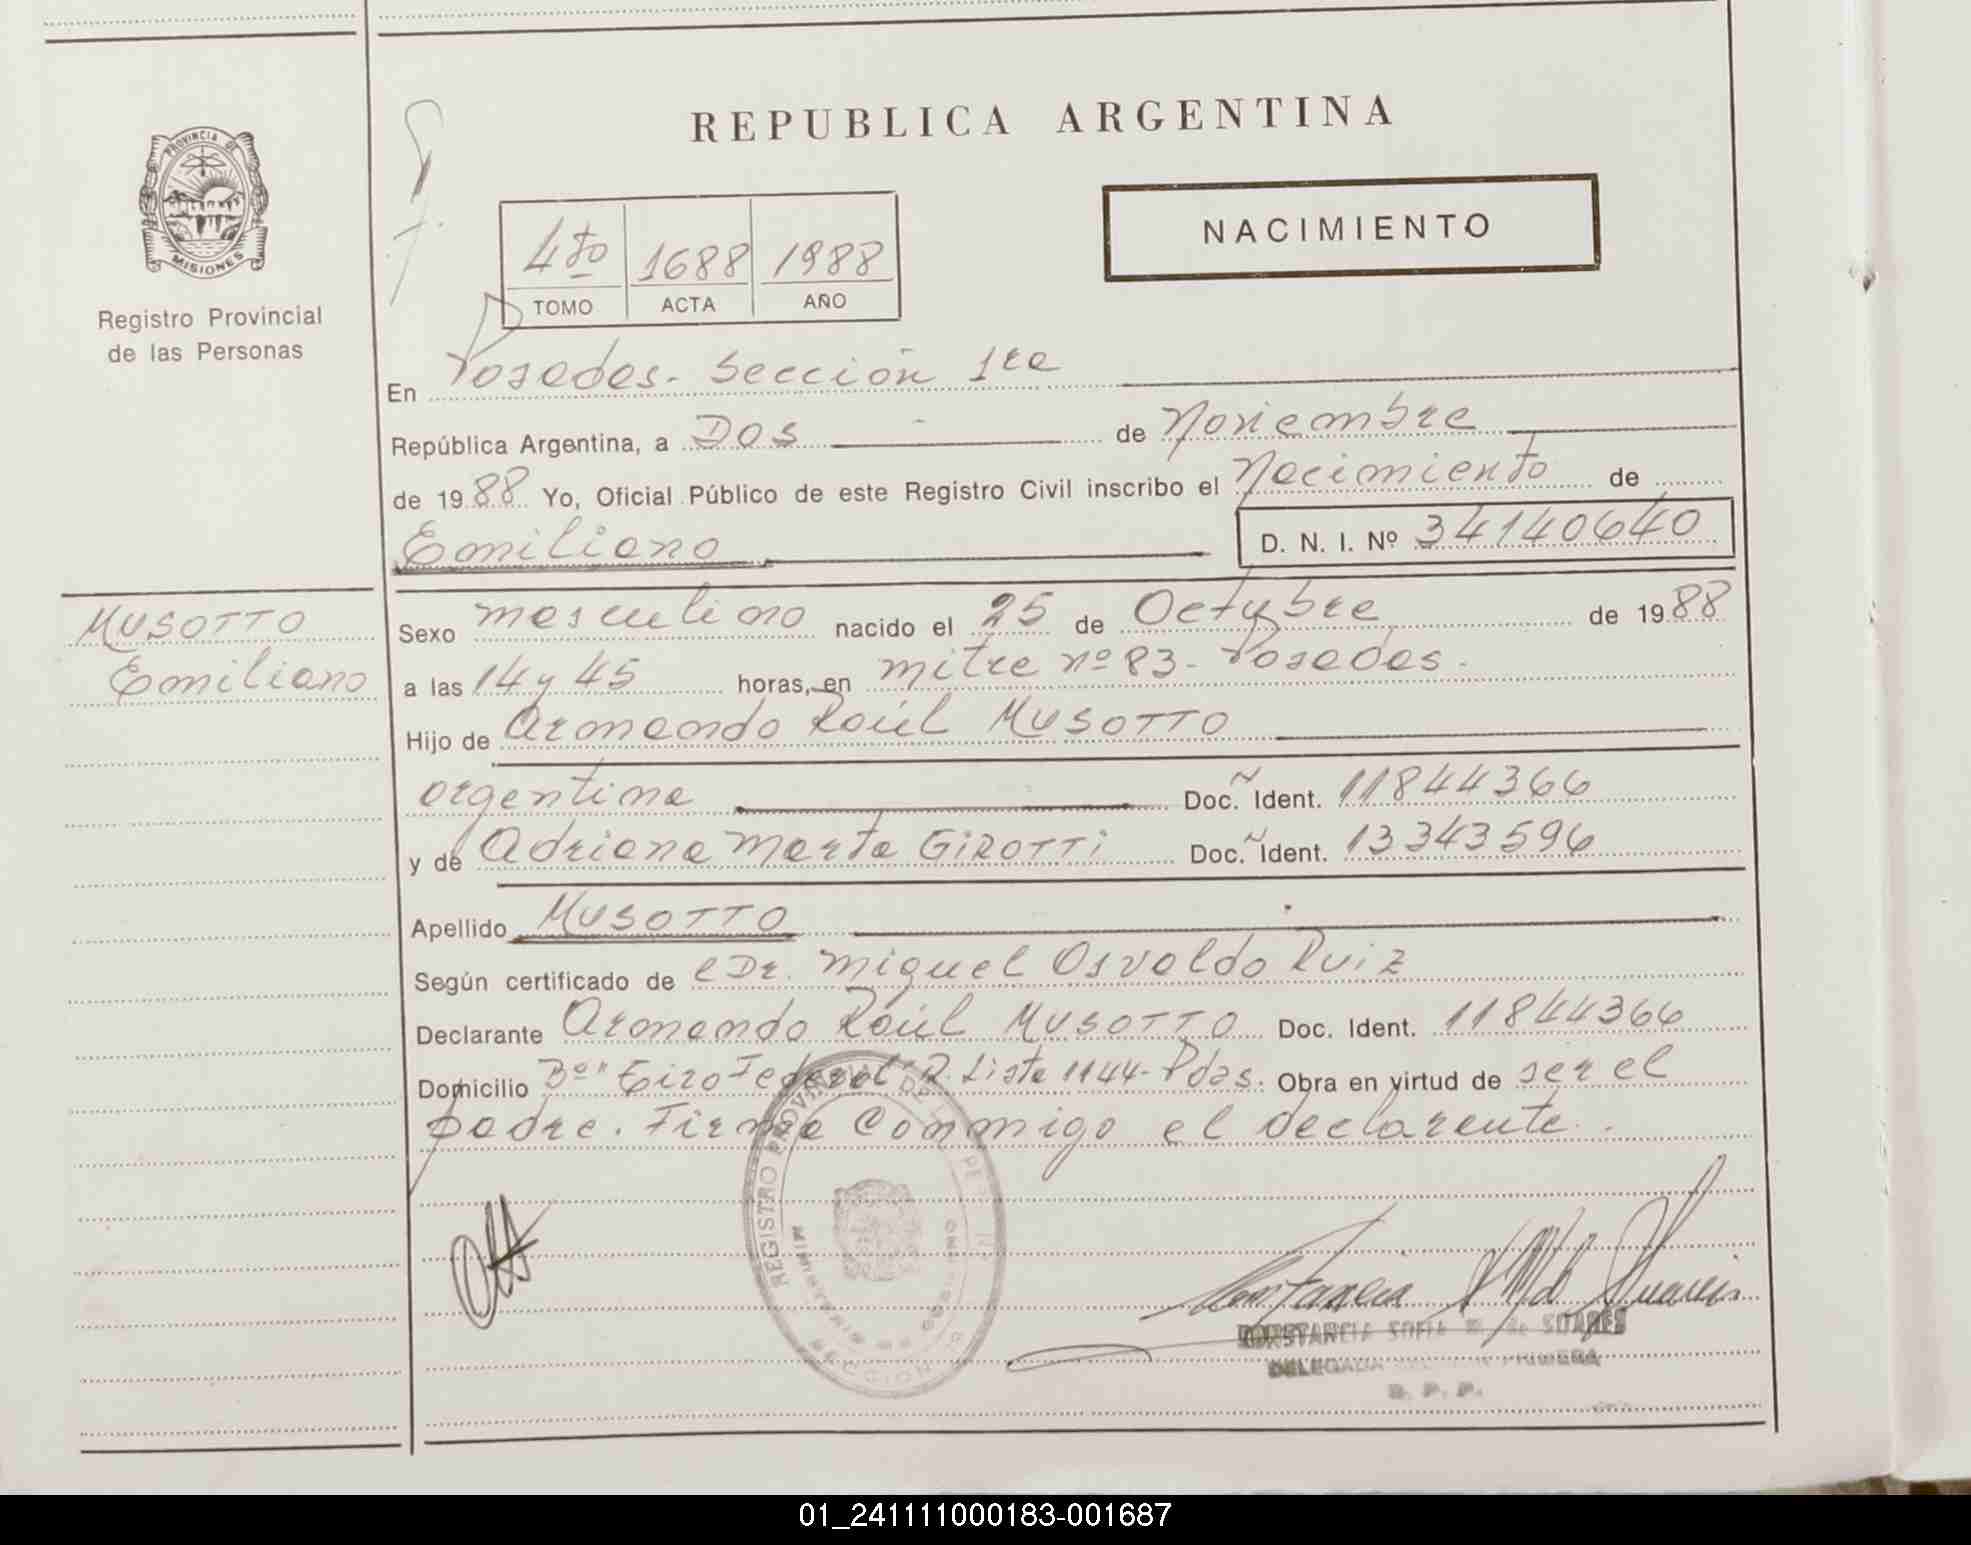 REPUBLICA ARGENTINA
PROVINCIA DE
MISIONES
Registro Provincial
de las Personas
NACIMIENTO
4to 1688 1988
TOMO ACTA AÑO
En Posadas. Sección 1ra
República Argentina, a Dos de Noviembre
de 1988 Yo, Oficial Público de este Registro Civil inscribo el Nacimiento de
Emiliano D. N. I. Nº 34140640
MUSOTTO
Emiliano
Sexo masculino nacido el 25 de Octubre de 1988
a las 14 y 45 horas, en mitre nº 83 - Posadas.
Hijo de Armando Raúl MUSOTTO
argentina Doc. Ident. 11844366
y de Adriana Marta GIROTTI Doc. Ident. 13343596
Apellido MUSOTTO
Según certificado de el Dr. Miguel Osvaldo Ruiz
Declarante Armando Raúl MUSOTTO Doc. Ident. 11844366
Domicilio Bº "Tiro Federal" R. Lista 1144 - Pdas. Obra en virtud de ser el
padre. Firma conmigo el declarante.
REGISTRO PROVINCIAL DE LAS PERSONAS
MINISTERIO DE GOBIERNO
SECCION 1a
CONSTANCIA SOFIA M. de SUARES
DELEGADA PRIMERA
R. P. P.
01_241111000183-001687